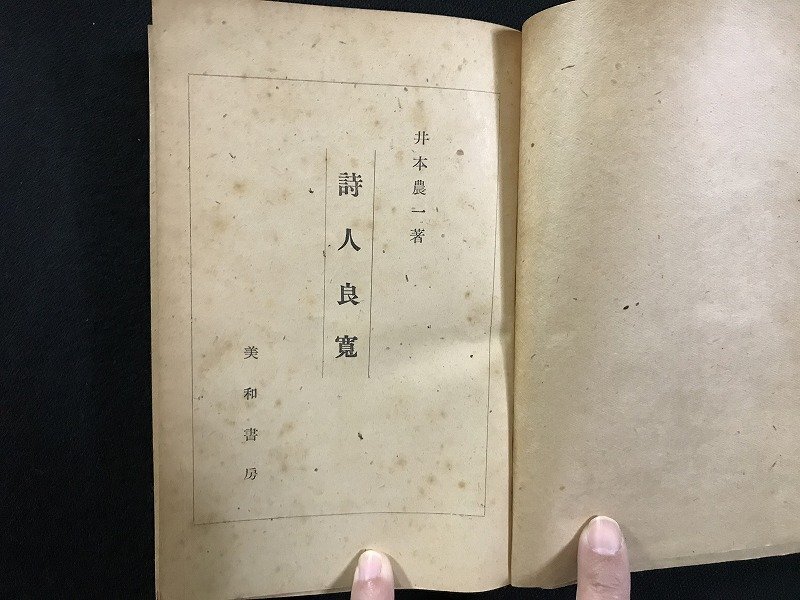 井本農一著
詩人良寬
美和書房